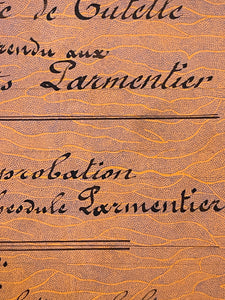 de Tutelle
rendu aux
Parmentier
probation
éodule Parmentier